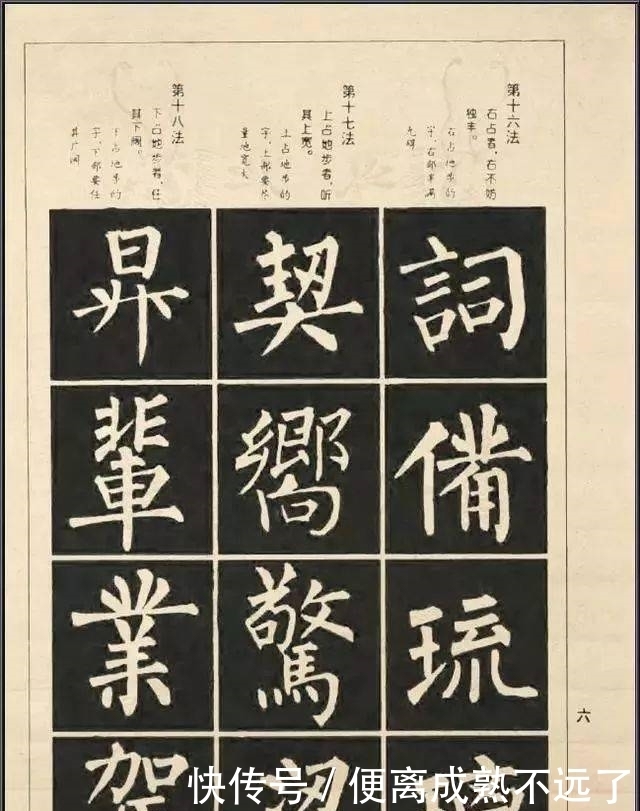 第十六法
右占者，右不妨
独丰。
右占地步的
字，右部丰满
无碍
詞
備
琉
第十七法
上占地步者，听
其上宽。
上占地步的
字，上部要尽
量地宽大
契
嚮
驚
第十八法
下占地步者，任
其下阔。
下占地步的
字，下部要任
其广阔
昇
輩
業
六
快传号／便离成熟不远了